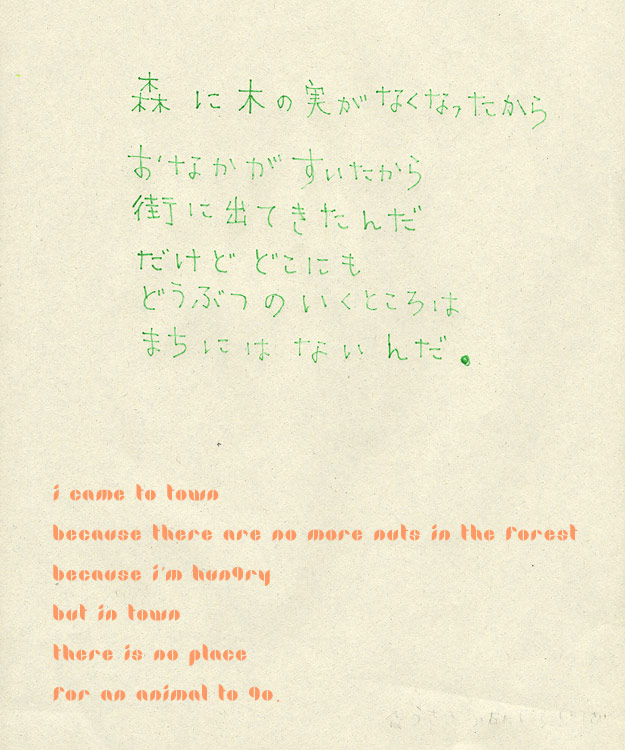 森に木の実がなくなったから
おなかがすいたから
街に出てきたんだ
だけどどこにも
どうぶつのいくところは
まちにはないんだ。
i came to town
because there are no more nuts in the forest
because i'm hungry
but in town
there is no place
for an animal to go.